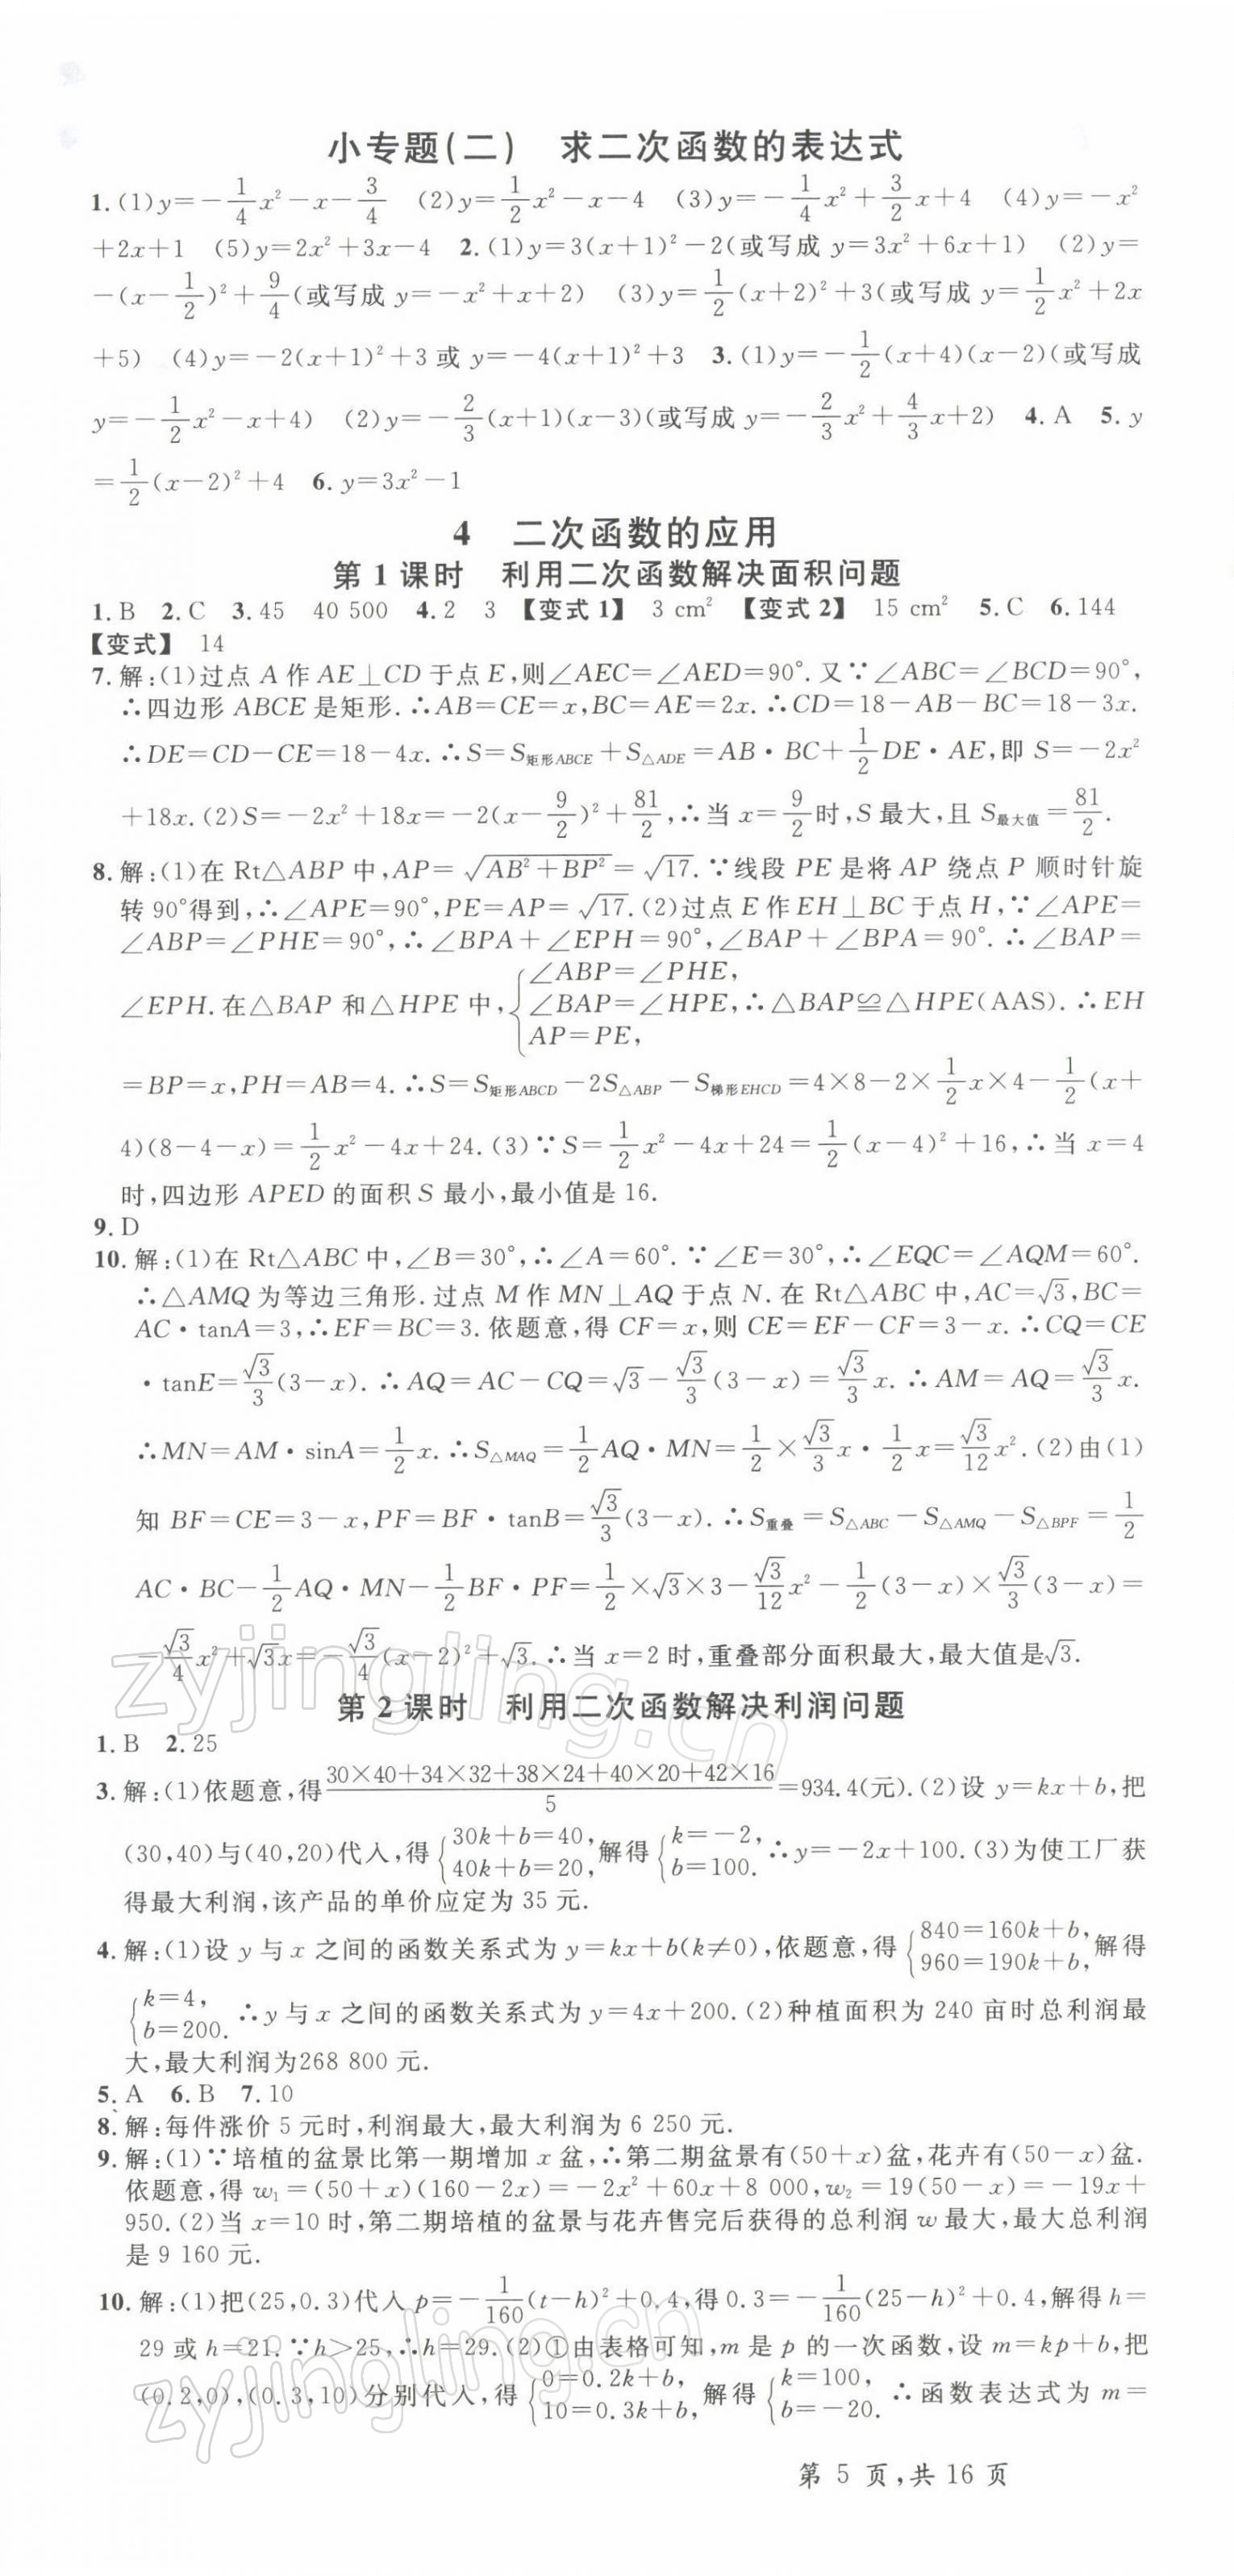 小专题(二)　求二次函数的表达式
1.(1)y=-1/4x²-x-3/4　(2)y=1/2x²-x-4　(3)y=-1/4x²+3/2x+4　(4)y=-x²
+2x+1　(5)y=2x²+3x-4　2.(1)y=3(x+1)²-2(或写成 y=3x²+6x+1)　(2)y=
-(x-1/2)²+9/4(或写成 y=-x²+x+2)　(3)y=1/2(x+2)²+3(或写成 y=1/2x²+2x
+5)　(4)y=-2(x+1)²+3 或 y=-4(x+1)²+3　3.(1)y=-1/2(x+4)(x-2)(或写成
y=-1/2x²-x+4)　(2)y=-2/3(x+1)(x-3)(或写成 y=-2/3x²+4/3x+2)　4.A　5.y
=1/2(x-2)²+4　6.y=3x²-1
4　二次函数的应用
第 1 课时　利用二次函数解决面积问题
1.B　2.C　3.45　40 500　4.2　3　【变式 1】　3 cm²　【变式 2】　15 cm²　5.C　6.144
【变式】　14
7.解:(1)过点 A 作 AE⊥CD 于点 E,则∠AEC=∠AED=90°.又∵∠ABC=∠BCD=90°,
∴四边形 ABCE 是矩形.∴AB=CE=x,BC=AE=2x.∴CD=18-AB-BC=18-3x.
∴DE=CD-CE=18-4x.∴S=S矩形ABCE+S△ADE=AB·BC+1/2DE·AE,即 S=-2x²
+18x.(2)S=-2x²+18x=-2(x-9/2)²+81/2,∴当 x=9/2时,S 最大,且 S最大值=81/2.
8.解:(1)在 Rt△ABP 中,AP=√(AB²+BP²)=√17.∵线段 PE 是将 AP 绕点 P 顺时针旋
转 90°得到,∴∠APE=90°,PE=AP=√17.(2)过点 E 作 EH⊥BC 于点 H,∵∠APE=
∠ABP=∠PHE=90°,∴∠BPA+∠EPH=90°,∠BAP+∠BPA=90°.∴∠BAP=
∠EPH.在△BAP 和△HPE 中,{∠ABP=∠PHE, ∠BAP=∠HPE, AP=PE, ∴△BAP≌△HPE(AAS).∴EH
=BP=x,PH=AB=4.∴S=S矩形ABCD-2S△ABP-S梯形EHCD=4×8-2×1/2x×4-1/2(x+
4)(8-4-x)=1/2x²-4x+24.(3)∵S=1/2x²-4x+24=1/2(x-4)²+16,∴当 x=4
时,四边形 APED 的面积 S 最小,最小值是 16.
9.D
10.解:(1)在 Rt△ABC 中,∠B=30°,∴∠A=60°.∵∠E=30°,∴∠EQC=∠AQM=60°.
∴△AMQ 为等边三角形.过点 M 作 MN⊥AQ 于点 N.在 Rt△ABC 中,AC=√3,BC=
AC·tanA=3,∴EF=BC=3.依题意,得 CF=x,则 CE=EF-CF=3-x.∴CQ=CE
·tanE=√3/3(3-x).∴AQ=AC-CQ=√3-√3/3(3-x)=√3/3x.∴AM=AQ=√3/3x.
∴MN=AM·sinA=1/2x.∴S△MAQ=1/2AQ·MN=1/2×√3/3x·1/2x=√3/12x².(2)由(1)
知 BF=CE=3-x,PF=BF·tanB=√3/3(3-x).∴S重叠=S△ABC-S△AMQ-S△BPF=1/2
AC·BC-1/2AQ·MN-1/2BF·PF=1/2×√3×3-√3/12x²-1/2(3-x)×√3/3(3-x)=
-√3/4x²+√3x=-√3/4(x-2)²+√3.∴当 x=2 时,重叠部分面积最大,最大值是√3.
zyjingling.cn
第 2 课时　利用二次函数解决利润问题
1.B　2.25
3.解:(1)依题意,得(30×40+34×32+38×24+40×20+42×16)/5=934.4(元).(2)设 y=kx+b,把
(30,40)与(40,20)代入,得{30k+b=40, 40k+b=20, 解得{k=-2, b=100. ∴y=-2x+100.(3)为使工厂获
得最大利润,该产品的单价应定为 35 元.
4.解:(1)设 y 与 x 之间的函数关系式为 y=kx+b(k≠0),依题意,得{840=160k+b, 960=190k+b, 解得
{k=4, b=200. ∴y 与 x 之间的函数关系式为 y=4x+200.(2)种植面积为 240 亩时总利润最
大,最大利润为268 800 元.
5.A　6.B　7.10
8.解:每件涨价 5 元时,利润最大,最大利润为 6 250 元.
9.解:(1)∵培植的盆景比第一期增加 x 盆,∴第二期盆景有(50+x)盆,花卉有(50-x)盆.
依题意,得 w₁=(50+x)(160-2x)=-2x²+60x+8 000,w₂=19(50-x)=-19x+
950.(2)当 x=10 时,第二期培植的盆景与花卉售完后获得的总利润 w 最大,最大总利润
是 9 160 元.
10.解:(1)把(25,0.3)代入 p=-1/160(t-h)²+0.4,得 0.3=-1/160(25-h)²+0.4,解得 h=
29 或 h=21.∵h>25,∴h=29.(2)①由表格可知,m 是 p 的一次函数,设 m=kp+b,把
(0.2,0),(0.3,10)分别代入,得{0=0.2k+b, 10=0.3k+b, 解得{k=100, b=-20. ∴函数表达式为 m=
zyjingling.cn
第 5 页,共 16 页